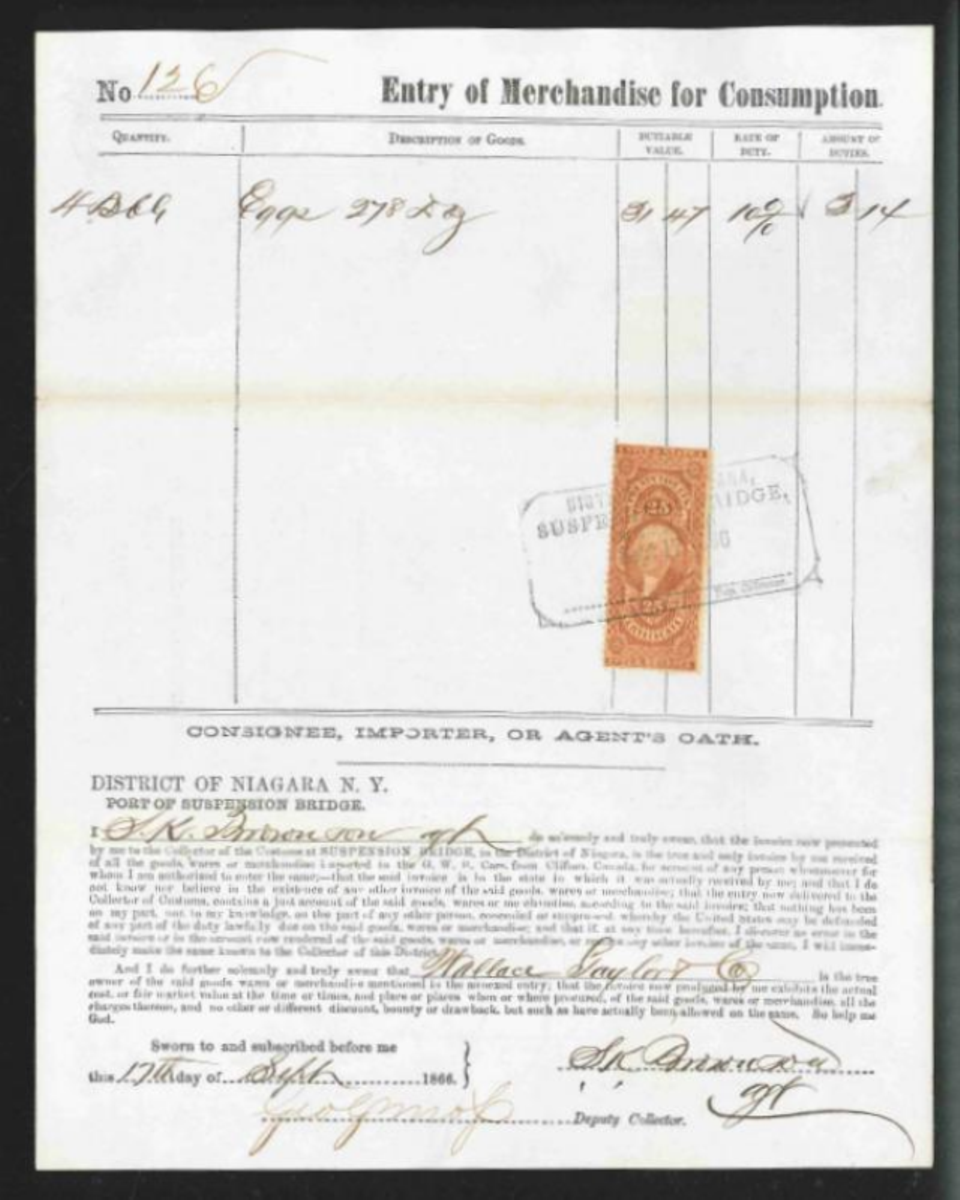 No 126
Entry of Merchandise for Consumption.
QUANTITY. DESCRIPTION OF GOODS. DUTIABLE VALUE. RATE OF DUTY. AMOUNT OF DUTIES.
4 Bbls Eggs 278 Dz 31 47 10% 3 14
25
SUSPE RIDGE,
CERTIFICATE
CONSIGNEE, IMPORTER, OR AGENT'S OATH.
DISTRICT OF NIAGARA N. Y.
PORT OF SUSPENSION BRIDGE.
I S. K. Brownson agt do solemnly and truly swear, that the Invoice now presented
by me to the Collector of the Customs at SUSPENSION BRIDGE, in the District of Niagara, is the true and only invoice by me received
of all the goods, wares or merchandise imported in the G. W. R. Cars from Clifton, Canada, for account of any person whomsoever for
whom I am authorized to enter the same;—that the said invoice is in the state in which it was actually received by me; and that I do
not know nor believe in the existence of any other invoice of the said goods, wares or merchandise; that the entry now delivered to the
Collector of Customs, contains a just account of the said goods, wares or merchandise, according to the said invoice; that nothing has been
on my part, nor to my knowledge, on the part of any other person, concealed or suppressed whereby the United States may be defrauded
of any part of the duty lawfully due on the said goods, wares or merchandise; and that if, at any time hereafter, I discover an error in the
said invoice or in the account now rendered of the said goods, wares or merchandise, or receive any other invoice of the same, I will imme-
diately make the same known to the Collector of this District.
And I do further solemnly and truly swear that Wallace Gaylord & Co is the true
owner of the said goods wares or merchandise mentioned in the annexed entry; that the invoice now produced by me exhibits the actual
cost, or fair market value at the time or times, and place or places when or where procured, of the said goods, wares or merchandise, all the
charges thereon, and no other or different discount, bounty or drawback, but such as have actually been allowed on the same. So help me
God.
Sworn to and subscribed before me
this 17th day of Sept 1866. } S K Brownson
agt
Deputy Collector.